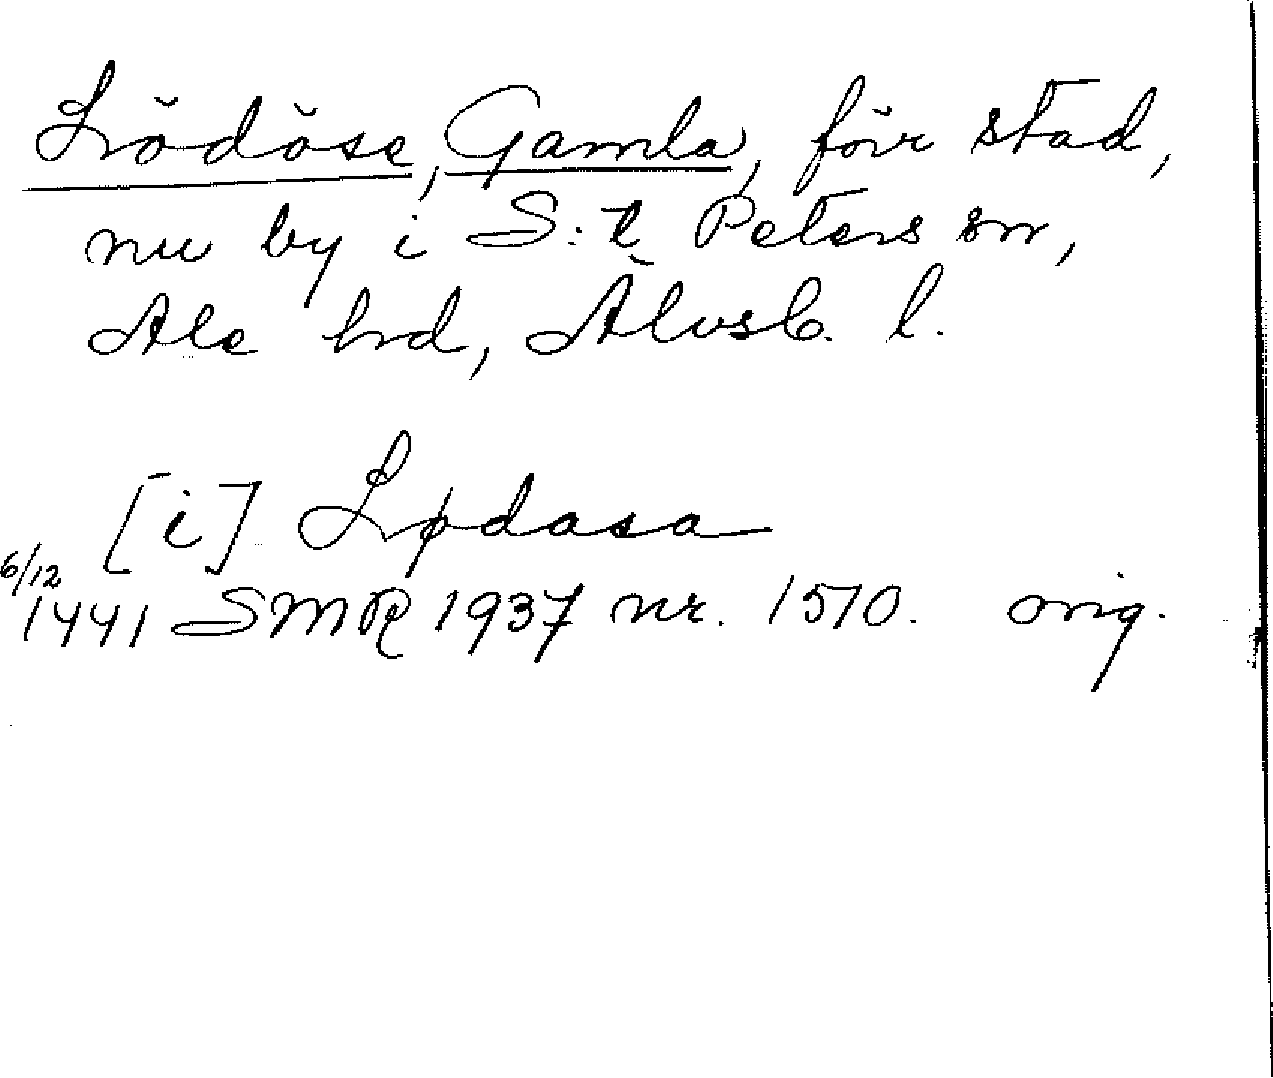 Lödöse, Gamla, förr stad,
nu by i S:t Peters sn,
Ale hd, Älvsb. l.
[i] Lødasa
6/12
1441 SMR 1937 nr. 1510. orig.